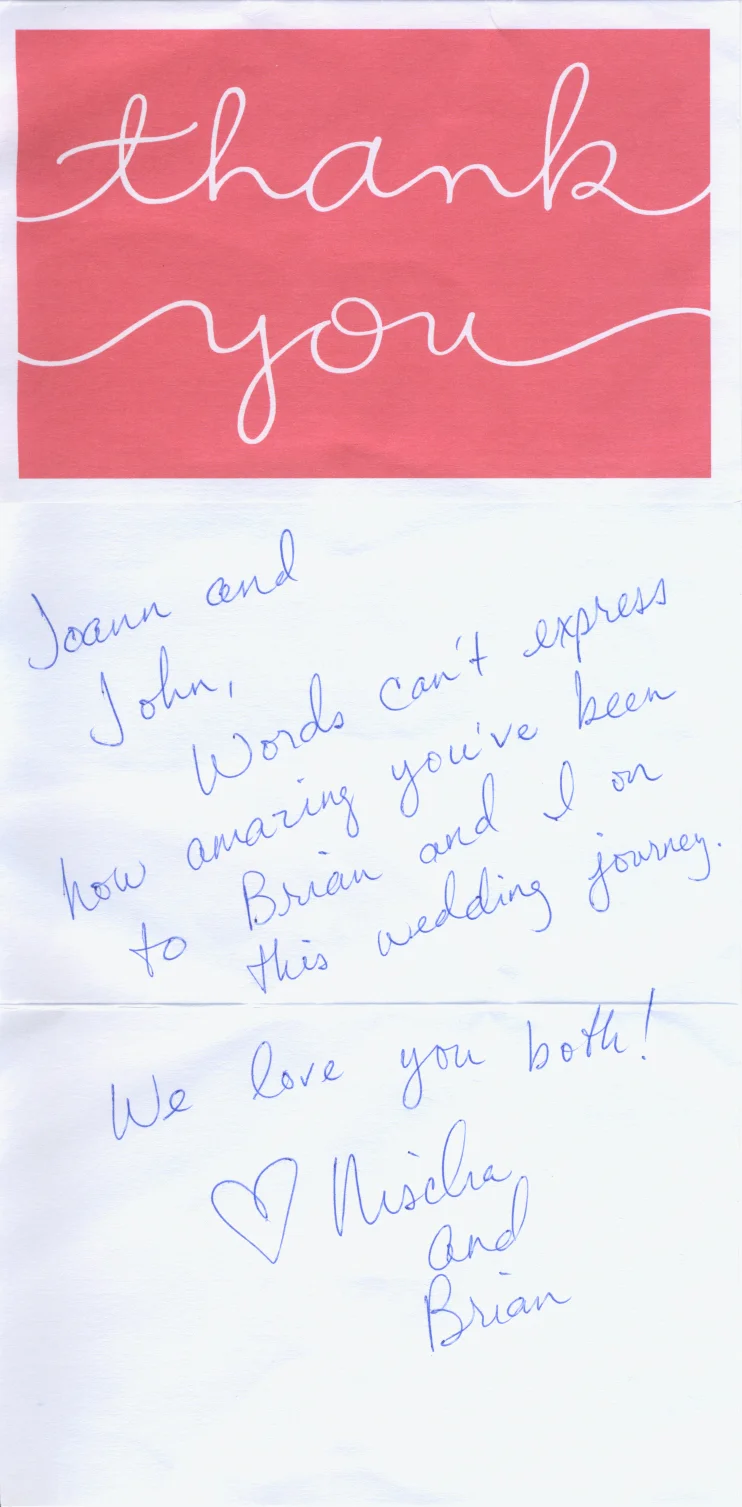 thank
you
Joann and
John,
Words can't express
how amazing you've been
to Brian and I on
this wedding journey.
We love you both!
♡ Mischa
and
Brian